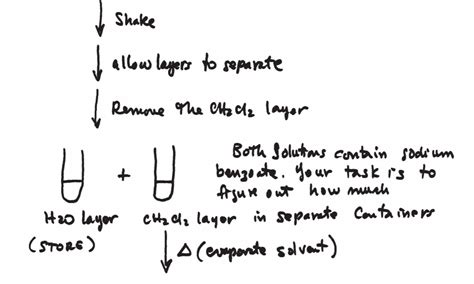 Shake
allow layers to separate
Remove the CH2Cl2 layer
+
Both Solutions contain sodium
benzoate. Your task is to
figure out how much
H2O layer
CH2Cl2 layer in separate containers
(STORE)
Δ (evaporate solvent)